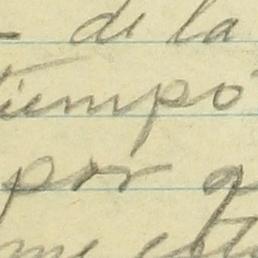 - de la
tiempo
por q
me est